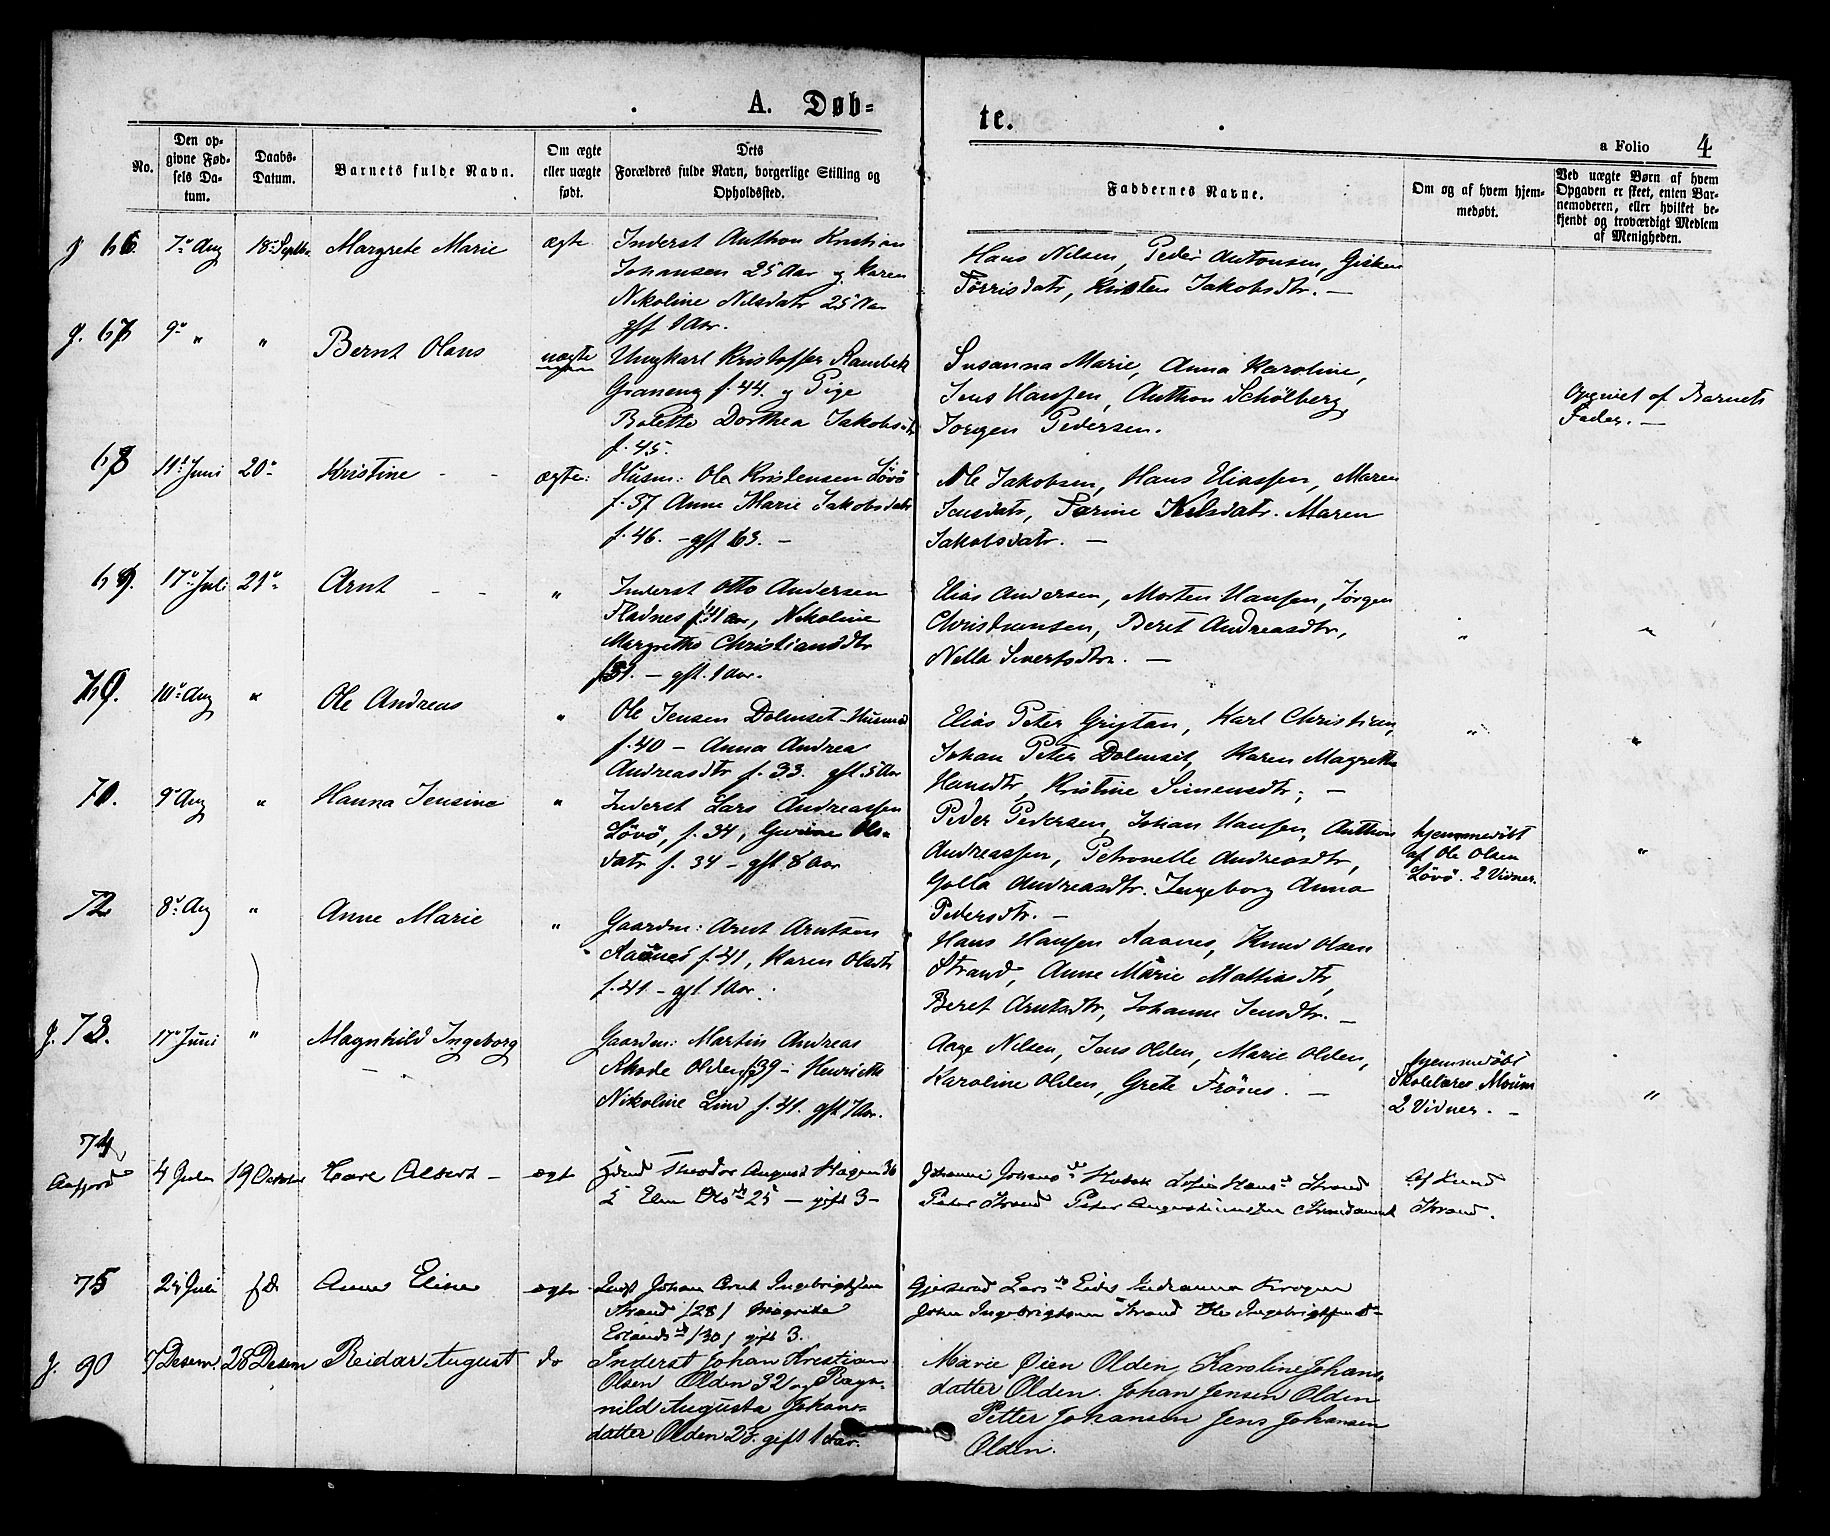 A. Døb-
te.
a Folio 4
No.
Den op-
givne Fød-
sels Da-
tum.
Daabs-
Datum.
Barnets fulde Navn.
Om ægte
eller uægte
født.
Dets
Forældres fulde Navn, borgerlige Stilling og
Opholdssted.
Faddernes Navne.
Om og af hvem hjem-
medøbt.
Ved uægte Børn af hvem
Opgaven er skeet, enten Bar-
nemoderen, eller hvilket be-
kjendt og troværdigt Medlem
af Menigheden.
66. 7de Aug 18 Septbr Margrete Marie ægte
Inderst Anthon Kristian
Johansen 25 Aar og Karen
Nikoline Nilsdatr 25 Aar
gft 1 Aar.
Hans Nilsen, Peder Antonsen, Gisken
Torrisdatr, Kristen Jakobsdtr. —
g. 67 9de " " Bernt Olaus uægte
Ungkarl Kristoffer
f. 44. og Pige
Bolette Dorthea Jakobsdtr
f. 45.
Susanna Marie, Anna Karoline,
Jens Hansen, Anthon Schölberg,
Jørgen Pedersen.
Opgivet af Barnets
Fader. —
68 11te Juni 20de Kristine - - ægte:
Husm: Ole Kristensen Lövö
f. 37 Anne Marie Jakobsdatr
f. 46. - gft 63. -
Ole Jakobsen, Hans Eliassen, Maren
Jensdatr, Maren
Jakobsdatr. —
69. 17de Juli 21de Arnt - - "
Inderst Otto Andersen
Fladnes Nikoline
Margrethe Christiansdtr
- gft. 1 Aar.
Elias Andersen, Morten Hansen, Jørgen
Christiansen, Beret Andreasdtr,
Nella Sivertsdtr. —
" "
70. 10de Aug " Ole Andreas "
Ole Jensen Dolmset Husmd
f. 40 - Anna Andrea
Andreasdtr f. 33. gft. 5 Aar
Elias Peter Karl Christian,
Johan Peter Dolmset, Karen Magrethe
Hansdtr, Kristine Simensdtr; —
" "
71. 9de Aug " Hanna Jensine "
Inderst Lars Andreassen
Lövö, f. 34, Ols-
datr f. 34 - gft. 8 Aar
Peder Pedersen, Johan Hansen, Anthon
Andreassen, Petronelle Andreasdtr,
Golla Andreasdtr. Ingeborg Anna
Pedersdtr. —
hjemmedöbt
af Ole Olsen
Lövö. 2 Vidner.
"
72 8de Aug " Anne Marie "
Gaardm: Arnt Arntsen
Raanes f. 41, Karen Olsdtr
f. 41 - gft. 1 Aar.
Hans Hansen Raanes, Knud Olsen
Strand, Anne Marie Mathiasdtr,
Beret Arntsdtr, Johanne Jensdtr. —
g. 73. 17de Juni " Magnhild Ingeborg
Gaardm: Martin Andreas
Rhode Olden f. 39 - Henriette
Nikoline Lind f. 41. gft 7 Aar.
Aage Nilsen, Jens Olden, Marie Olden,
Karoline Olden, Grete Frönes. —
hjemmedöbt
Skolelærer Moum
2 Vidner. —
"
74
Aafjord 4 19 October Carl Albert - ægt
Theodor August Hagen 36
25 - gift 3 -
Strand
Peter Strand Peter
Af Knud
Strand.
75 Juli Anne Eline ægte
Johan Arnt Ingebrigtsen
Strand /28/ Magrete
/30/ gift 3.
Lars
John Ingebrigtsen Strand Ole Ingebrigtsen
g. 90 7 Desem. 28 Desem Reidar August do
Inderst Johan Kristian
Olsen Olden 32 og Ragn-
hild Augusta Johans-
datter Olden 28. gift 1 Aar.
Marie Øien Olden, Karoline Johans-
datter Olden. Johan Jensen Olden
Petter Johansen Jens Johansen
Olden.